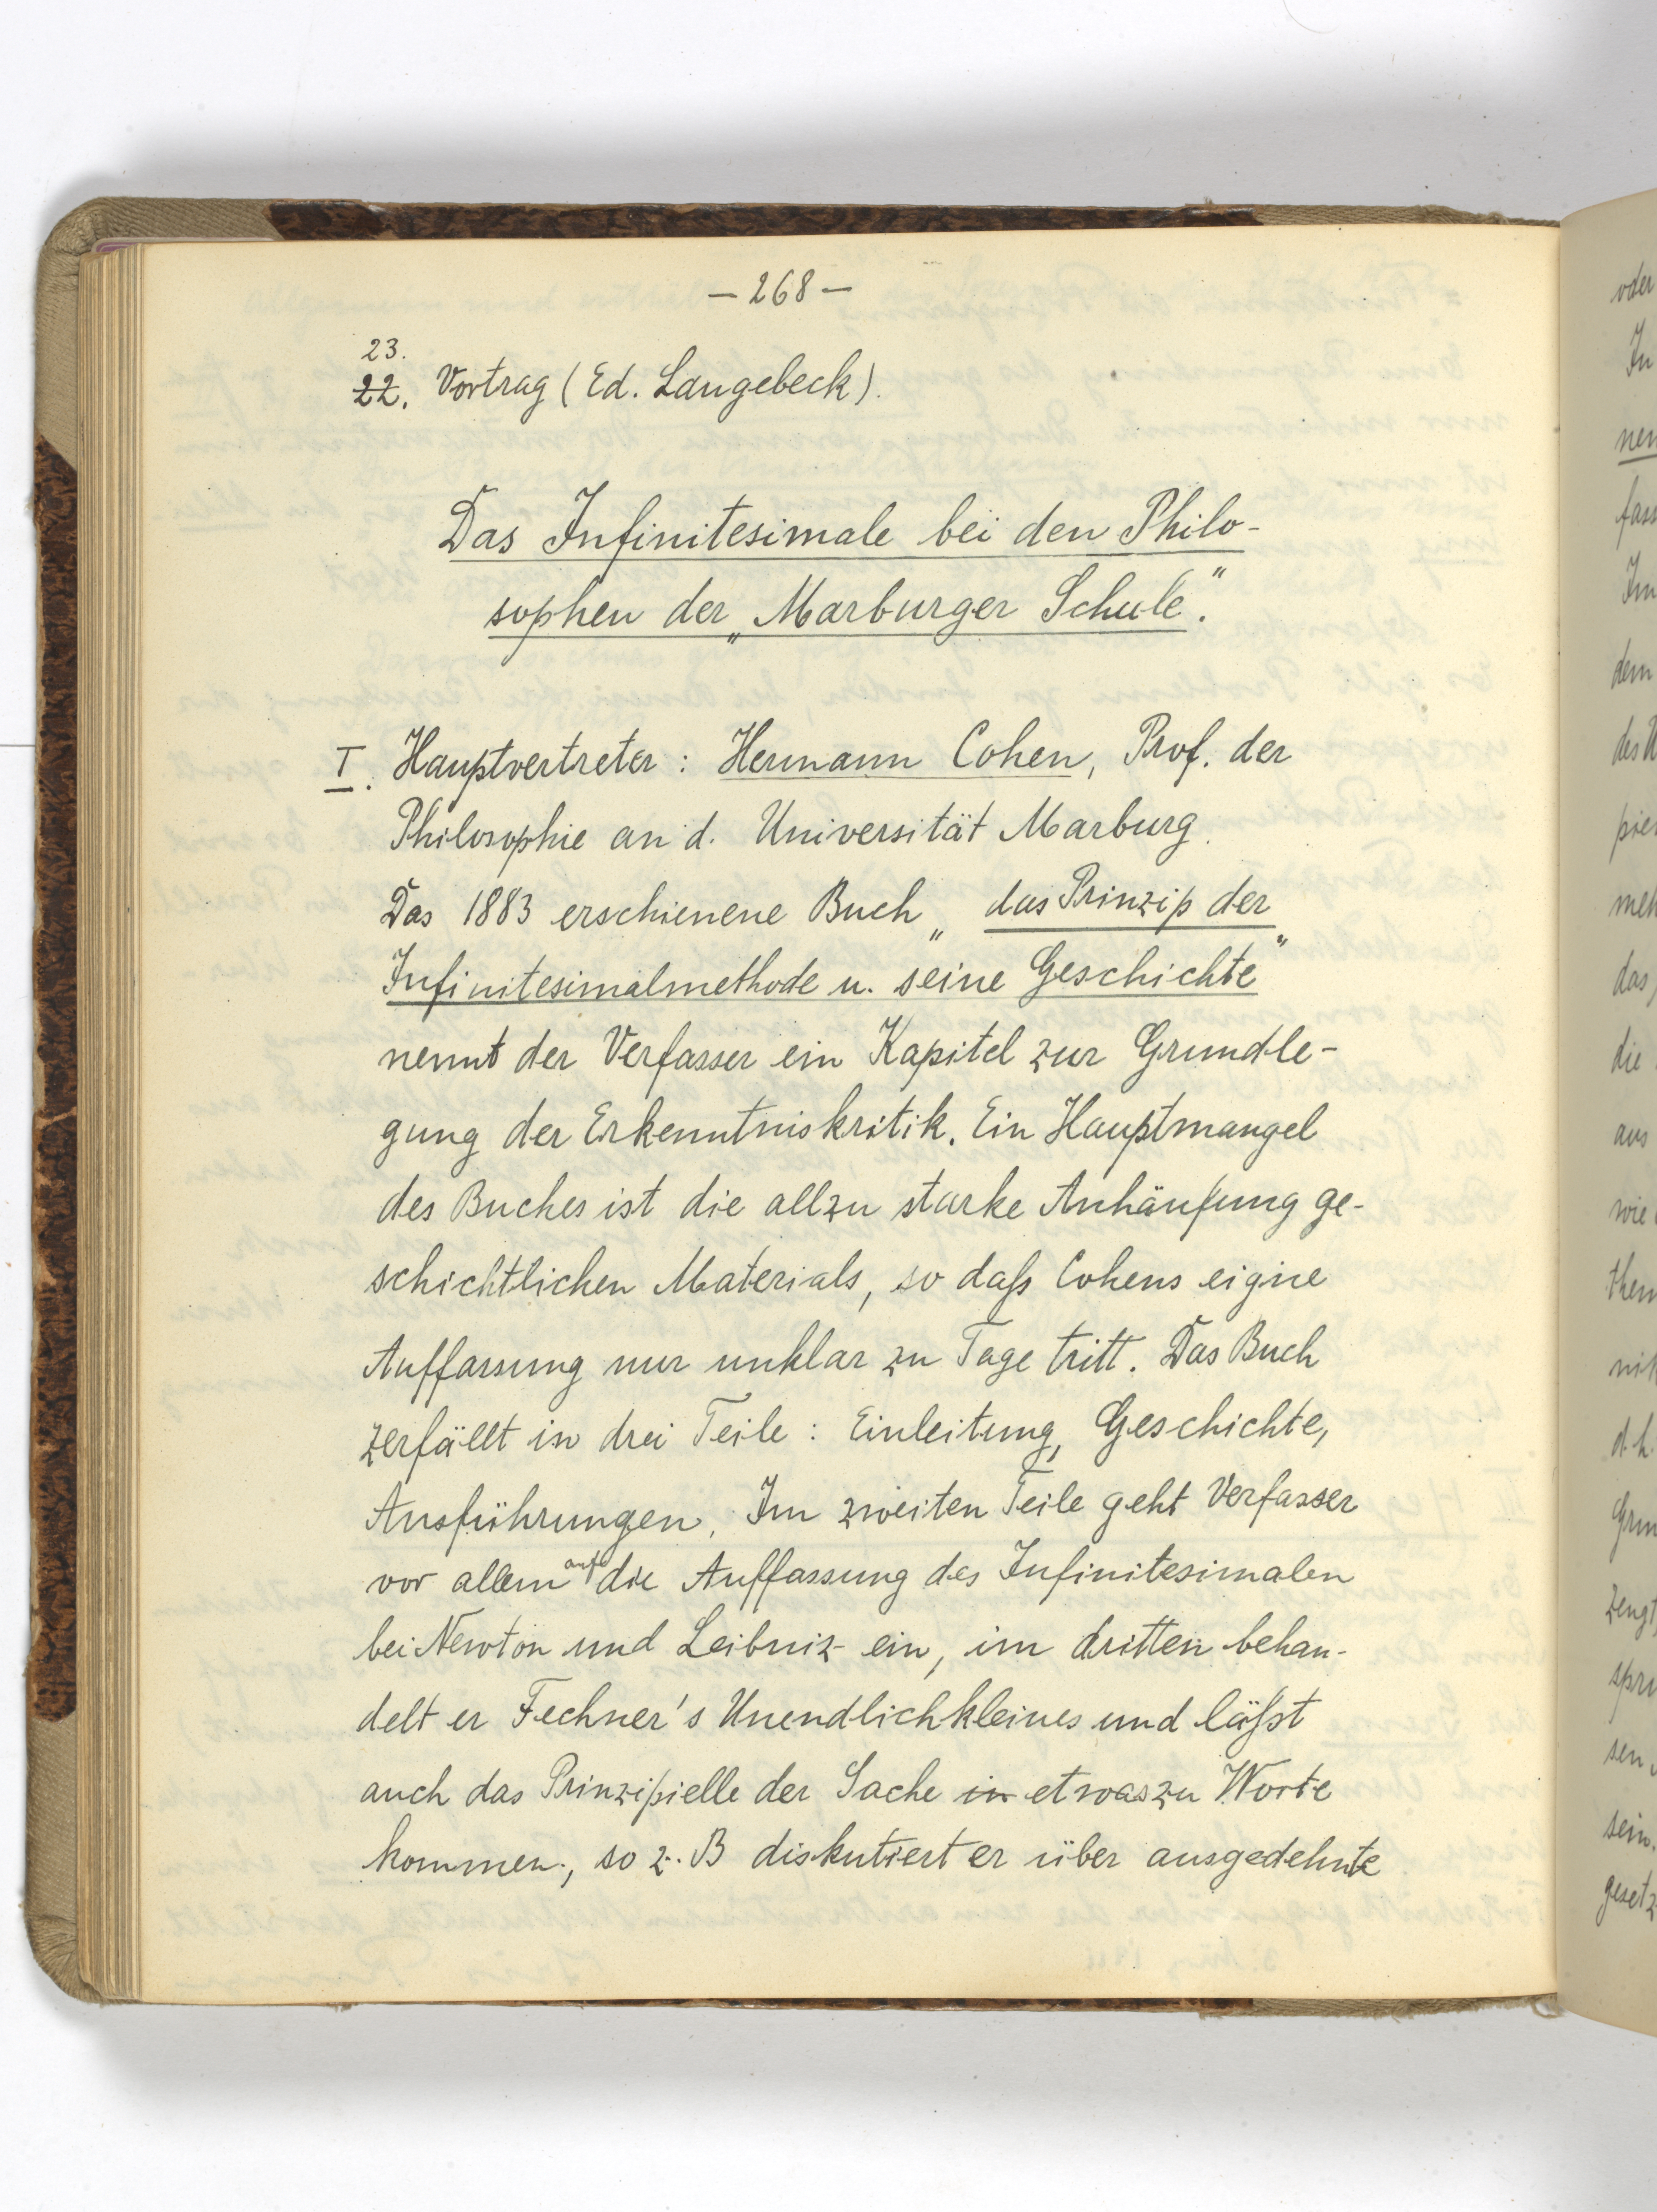 – 268 –
23.
22. Vortrag (Ed. Langebeck).
Das Infinitesimale bei den Philo-
sophen der „Marburger Schule“.
I. Hauptvertreter: Hermann Cohen, Prof. der
Philosophie an d. Universität Marburg.
Das 1883 erschienene Buch „das Prinzip der
Infinitesimalmethode u. seine Geschichte“
nennt der Verfasser ein Kapitel zur Grundle-
gung der Erkenntniskritik. Ein Hauptmangel
des Buches ist die allzu starke Anhäufung ge-
schichtlichen Materials, so daß Cohens eigne
Auffassung nur unklar zu Tage tritt. Das Buch
zerfällt in drei Teile: Einleitung, Geschichte,
Ausführungen. Im zweiten Teile geht Verfasser
vor allem auf die Auffassung des Infinitesimalen
bei Newton und Leibniz ein, im dritten behan-
delt er Fechner's Unendlichkleines und läßt
auch das Prinzipielle der Sache in etwas zu Worte
kommen, so z. B diskutiert er über ausgedehnte
oder
In
fass
Im
dem
des U
meh
das,
die
aus
wie
d. h.
sein.